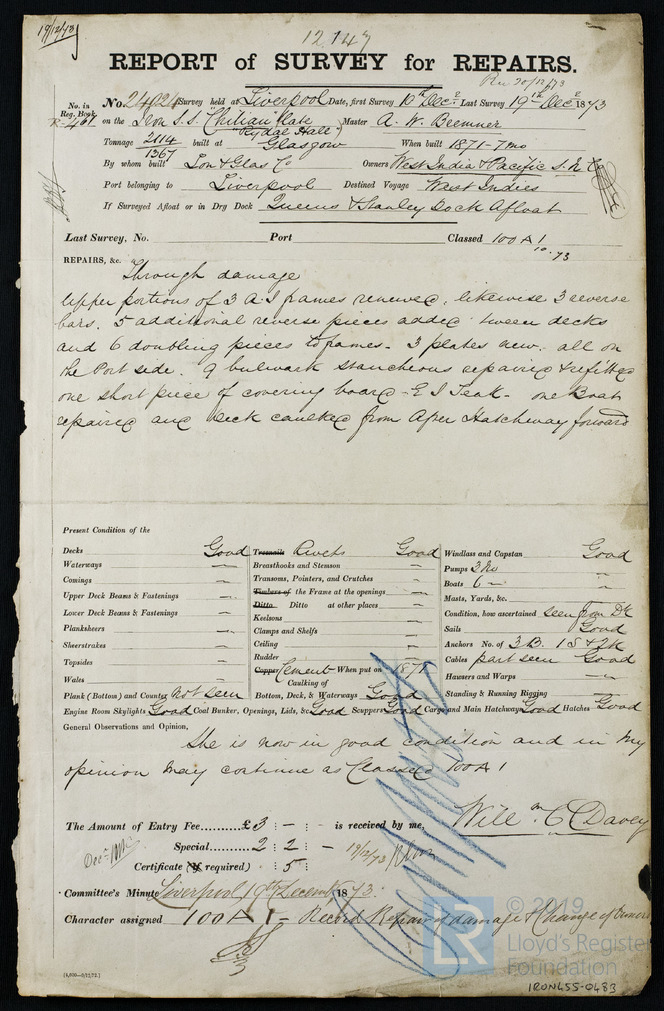 19/12/73
12,147
REPORT of SURVEY for REPAIRS.
Rec 20/12/73
No. 24024 Survey held at Liverpool Date, first Survey 10th Decr. Last Survey 19th Decr 1873
No. in Reg. Book.
on the Iron S.S. "Chilian" late "Rydal Hall" Master A. W. Bremner
Tonnage 2114 / 1367 built at Glasgow When built 1871-7mo
By whom built Lon & Glas Co Owners West India & Pacific S. N. Co
Port belonging to Liverpool Destined Voyage West Indies
If Surveyed Afloat or in Dry Dock Queens & Stanley Dock Afloat
Last Survey, No. Port Classed 100 A 1
10.73
REPAIRS, &c. Through damage
Upper portions of 3 A.I frames renewed, likewise 3 reverse
bars. 5 additional reverse pieces added 'tween decks
and 6 doubling pieces to frames. 3 plates new. all on
the Port side. 9 bulwark stauncheons repaired & refitted
one short piece of covering board - E I Teak - one Boat
repaired and deck caulked from After Hatchway forward
Present Condition of the
Decks Good Treenails Rivets Good Windlass and Capstan Good
Waterways " Breasthooks and Stemson " Pumps 3 No "
Comings " Transoms, Pointers, and Crutches " Boats 6 "
Upper Deck Beams & Fastenings " Timbers of the Frame at the openings " Masts, Yards, &c. "
Lower Deck Beams & Fastenings " Ditto Ditto at other places " Condition, how ascertained seen from Dk
Planksheers " Keelsons " Sails Good
Sheerstrakes " Clamps and Shelfs " Anchors No. of 3 B. 1 S & 2 K
Topsides " Ceiling " Cables part seen Good
Wales " Rudder " Hawsers and Warps "
Copper Cement When put on 1871 Standing & Running Rigging "
Plank (Bottom) and Counter Not seen Caulking of Bottom, Deck, & Waterways Good
Engine Room Skylights Good Coal Bunker, Openings, Lids, &c. Good Scuppers Good Cargo and Main Hatchways Good Hatches Good
General Observations and Opinion,
She is now in good condition and in my
opinion may continue as Classed 100 A 1
Willm C Davey
The Amount of Entry Fee......... £ 3 : - : - is received by me,
Special......... 2 : 2 : - 19/12/73
Certificate (if required) : 5 :
Committee's Minute Liverpool 19th December 1873.
Character assigned 100 A 1 - Record Repair of damage & Change of Owners
[4,000—9/12,72.]
© 2019
LR
Lloyd's Register
Foundation
IRON455-0483